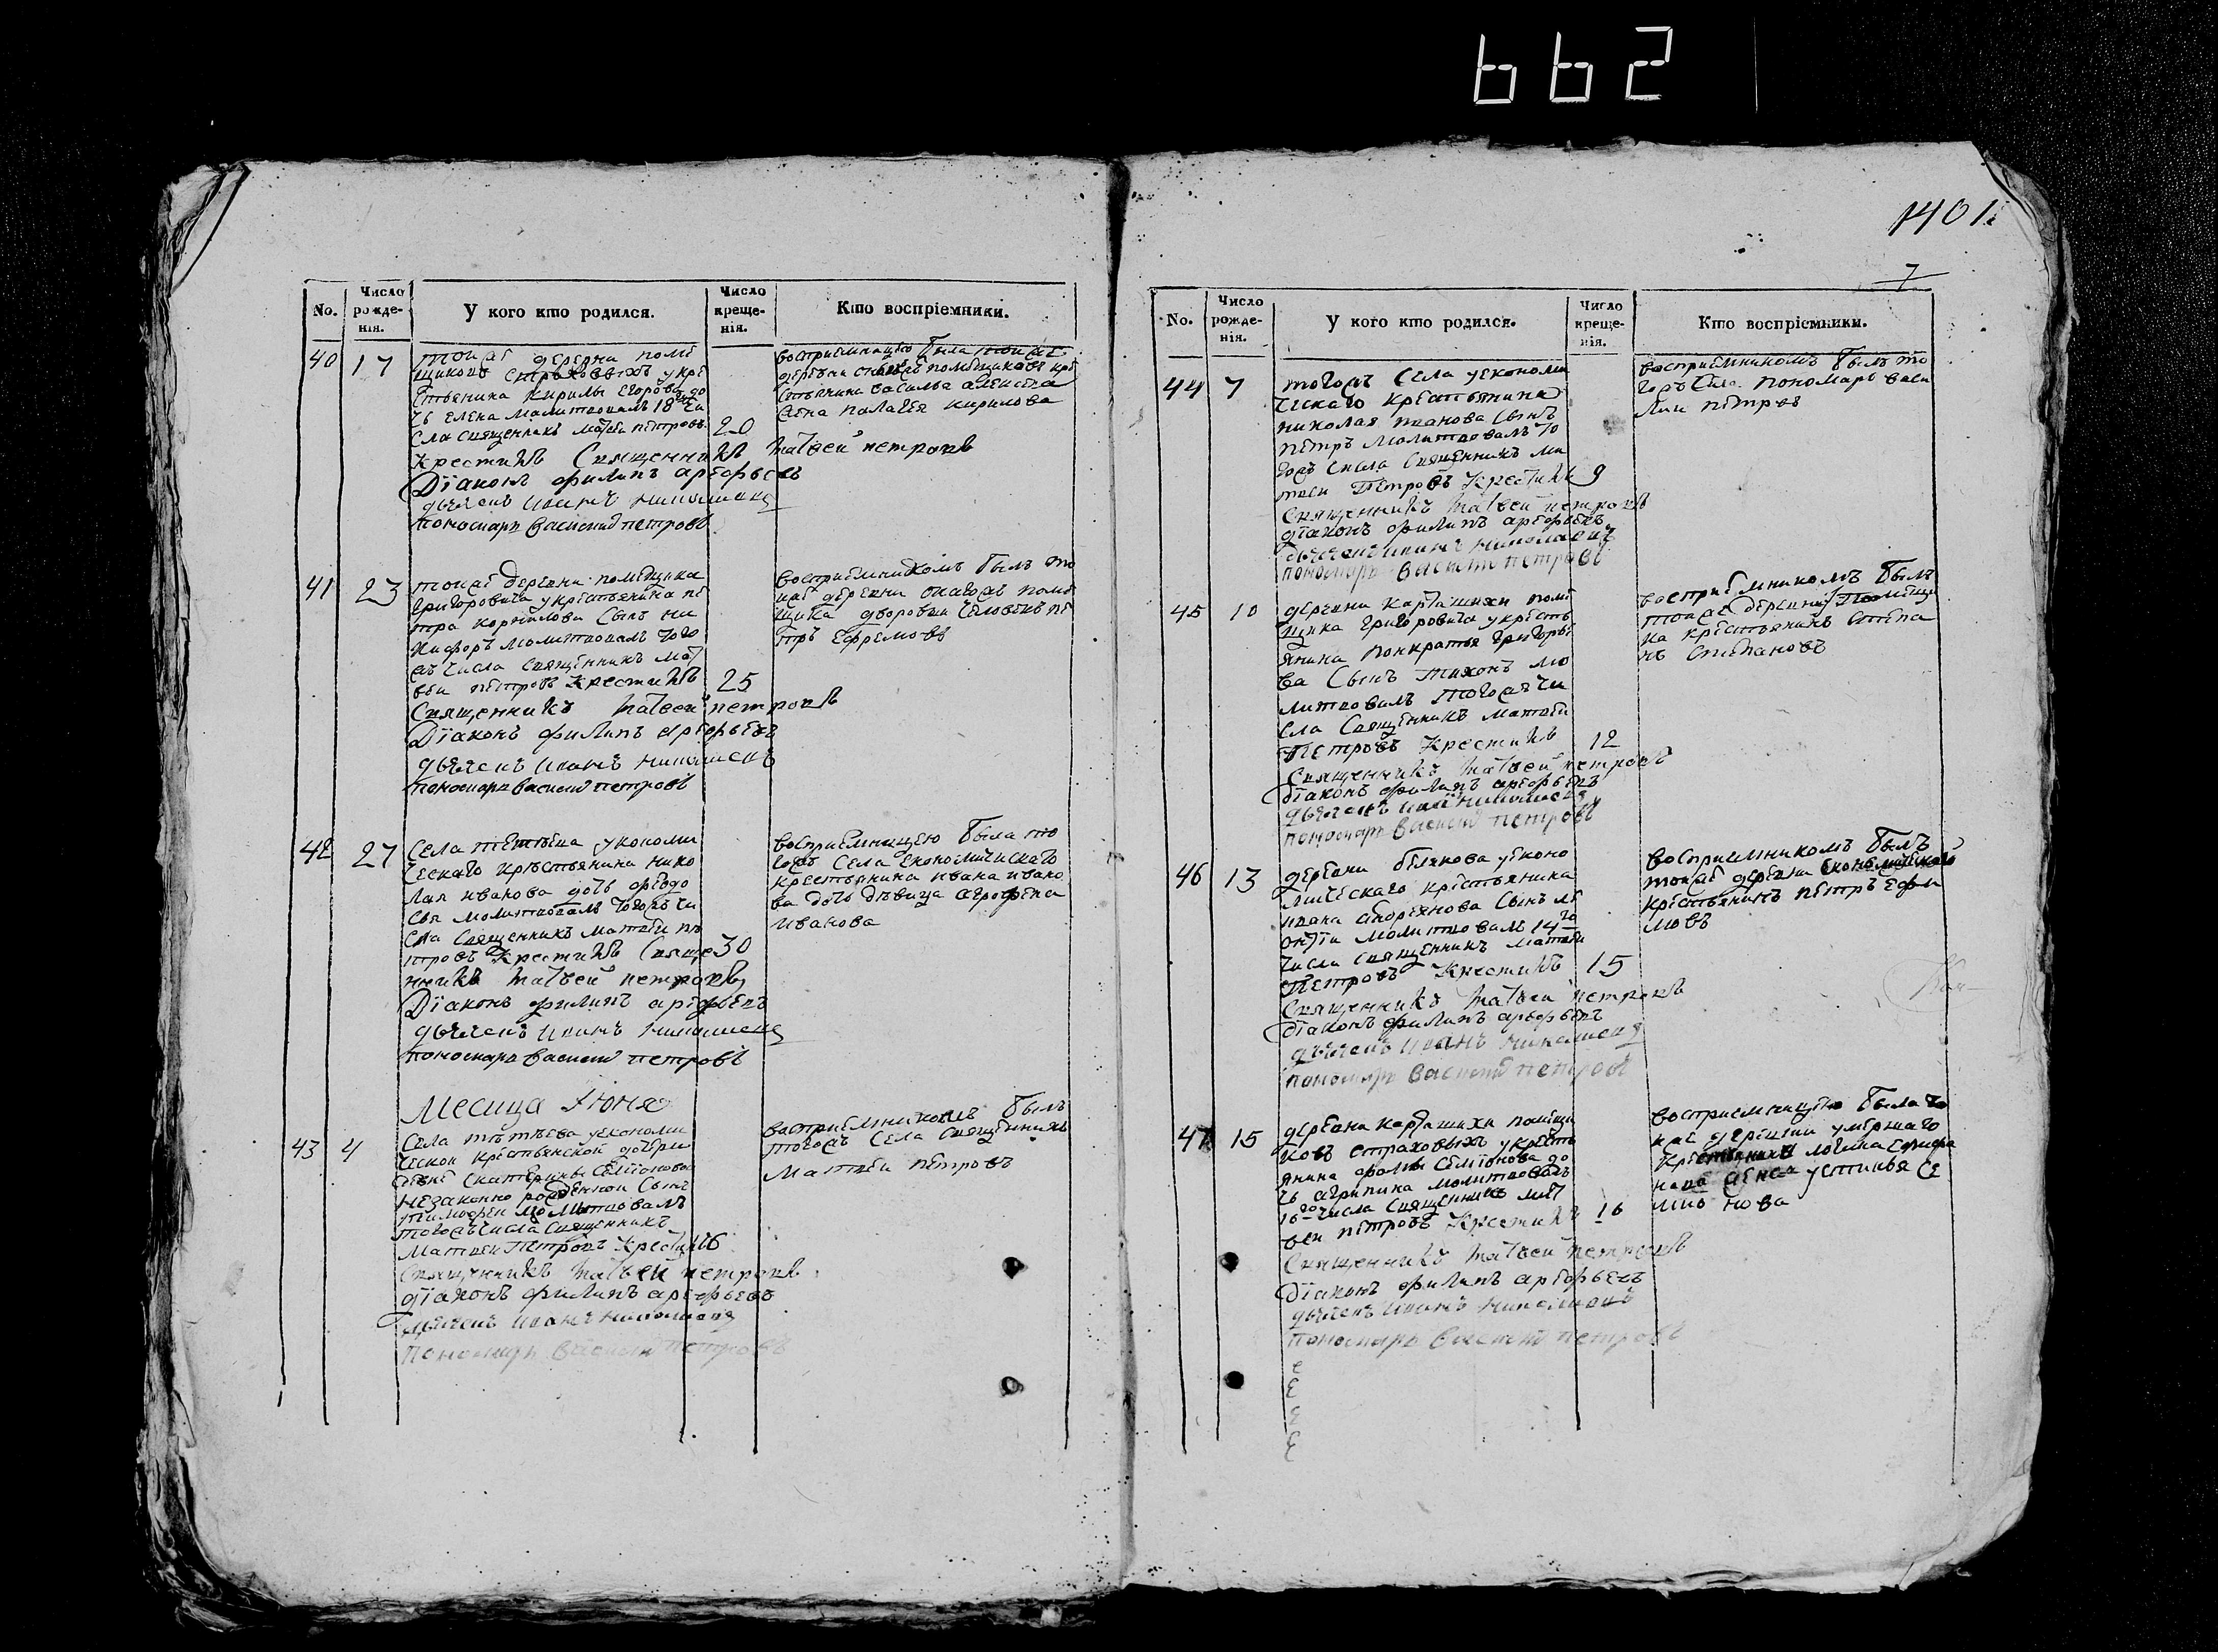 662
1401
7
No.
Число рожденія.
У кого кто родился.
Число крещенія.
Кто воспріемники.
40 17
тойже деревни поме
щиковъ Страховыхъ у кре
стьянина Кирилы Егорова до
чь Елена молитвовалъ 18го чи
сла священникъ Матвеи Петровъ 20
крестилъ Священникъ Матвей петровъ
Діаконъ филипъ арефьевъ
дьячекъ иванъ николаевъ
пономарь василий петровъ
восприемницею была тойже
деревни помещиковъ кре
стьянина василья алексеева
жена палагея кирилова
41 23
тойже деревни помещика
григоровича у крестьянина пе
тра корнилова сынъ ни
кифоръ молитвовалъ того
жъ числа священникъ мат
веи петровъ крестилъ 25
Священникъ Матвей петровъ
Діаконъ филипъ арефьевъ
дьячекъ иванъ николаевъ
пономарь василий петровъ
восприемникомъ былъ то
йже деревни онагожъ поме
щика дворовыи человекъ пе
тръ Ефремовъ
42 27
села у економи
ческаго крестьянина нико
лая иванова дочь федо
сья молитвовалъ тогожъ чи
сла священникъ матвеи пе
тровъ крестилъ Свяще 30
нникъ Матвей петровъ
Діаконъ филипъ арефьевъ
дьячекъ иванъ николаевъ
пономарь василий петровъ
восприемницею была то
гожъ села економическаго
крестьянина ивана ивано
ва дочь девица агрофена
иванова
Месяца Іюня
43 4
Села у економи
ческой крестьянской дочери
девки екатерины семионовой
незаконно рожденнои сынъ
тимофеи молитвовалъ
тогожъ числа священникъ
Матвеи Петровъ крестилъ 6
Священникъ Матвей петровъ
діаконъ филипъ арефьевъ
дьячекъ иванъ николаевъ
пономарь василий петровъ
восприемникомъ былъ
тогожъ села священникъ
Матвеи петровъ
No.
Число рожденія.
У кого кто родился.
Число крещенія.
Кто воспріемники.
44 7
тогожъ села у економи
ческаго крестьянина
николая иванова сынъ
петръ молитвовалъ то
гожъ числа священникъ ма
твеи Петровъ крестилъ 9
Священникъ Матвей петровъ
діаконъ филипъ арефьевъ
дьячекъ иванъ николаевъ
пономарь василий петровъ
восприемникомъ былъ то
гожъ села пономарь васи
лии петровъ
45 10
деревни карташихи поме
щика григоровича у кресть
янина понкратья григорье
ва сынъ тихонъ мо
литвовалъ тогожъ чи
сла священникъ матвеи
Петровъ крестилъ 12
Священникъ Матвей петровъ
діаконъ филипъ арефьевъ
дьячекъ иванъ николаевъ
пономарь василий петровъ
восприемникомъ былъ
тойже деревни помещи
ка крестьянинъ степа
нъ степановъ
46 13
деревни белякова у еконо
мическаго крестьянина
ивана сынъ ле
онтіи молитвовалъ 14го
числа священникъ матвеи
Петровъ крестилъ 15
Священникъ Матвей петровъ
діаконъ филипъ арефьевъ
дьячекъ иванъ николаевъ
пономарь василий петровъ
восприемникомъ былъ
тойже деревни економическаго
крестьянинъ петръ ефи
мовъ
47 15
деревни карташихи помещи
ковъ страховыхъ у кресть
янина фомы семионова до
чь агрипина молитвовалъ
16го числа священникъ мат
веи петровъ крестилъ 16
Священникъ Матвей петровъ
діаконъ филипъ арефьевъ
дьячекъ иванъ николаевъ
пономарь василий петровъ
восприемницею была то
йже деревни умершаго
жена устинья се
мионова